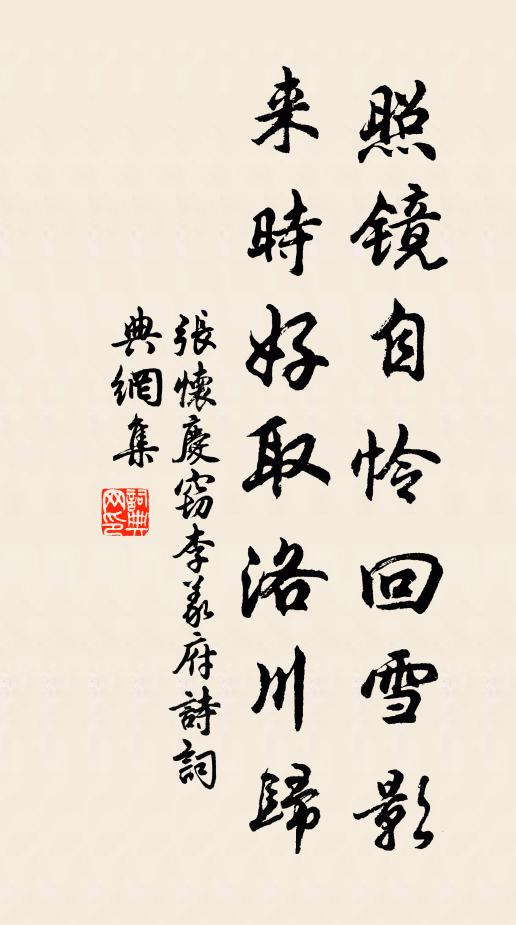 照镜自怜回雪影
来時好取洛川歸
張懷慶窃李義府詩詞
典網集
詞典
网印